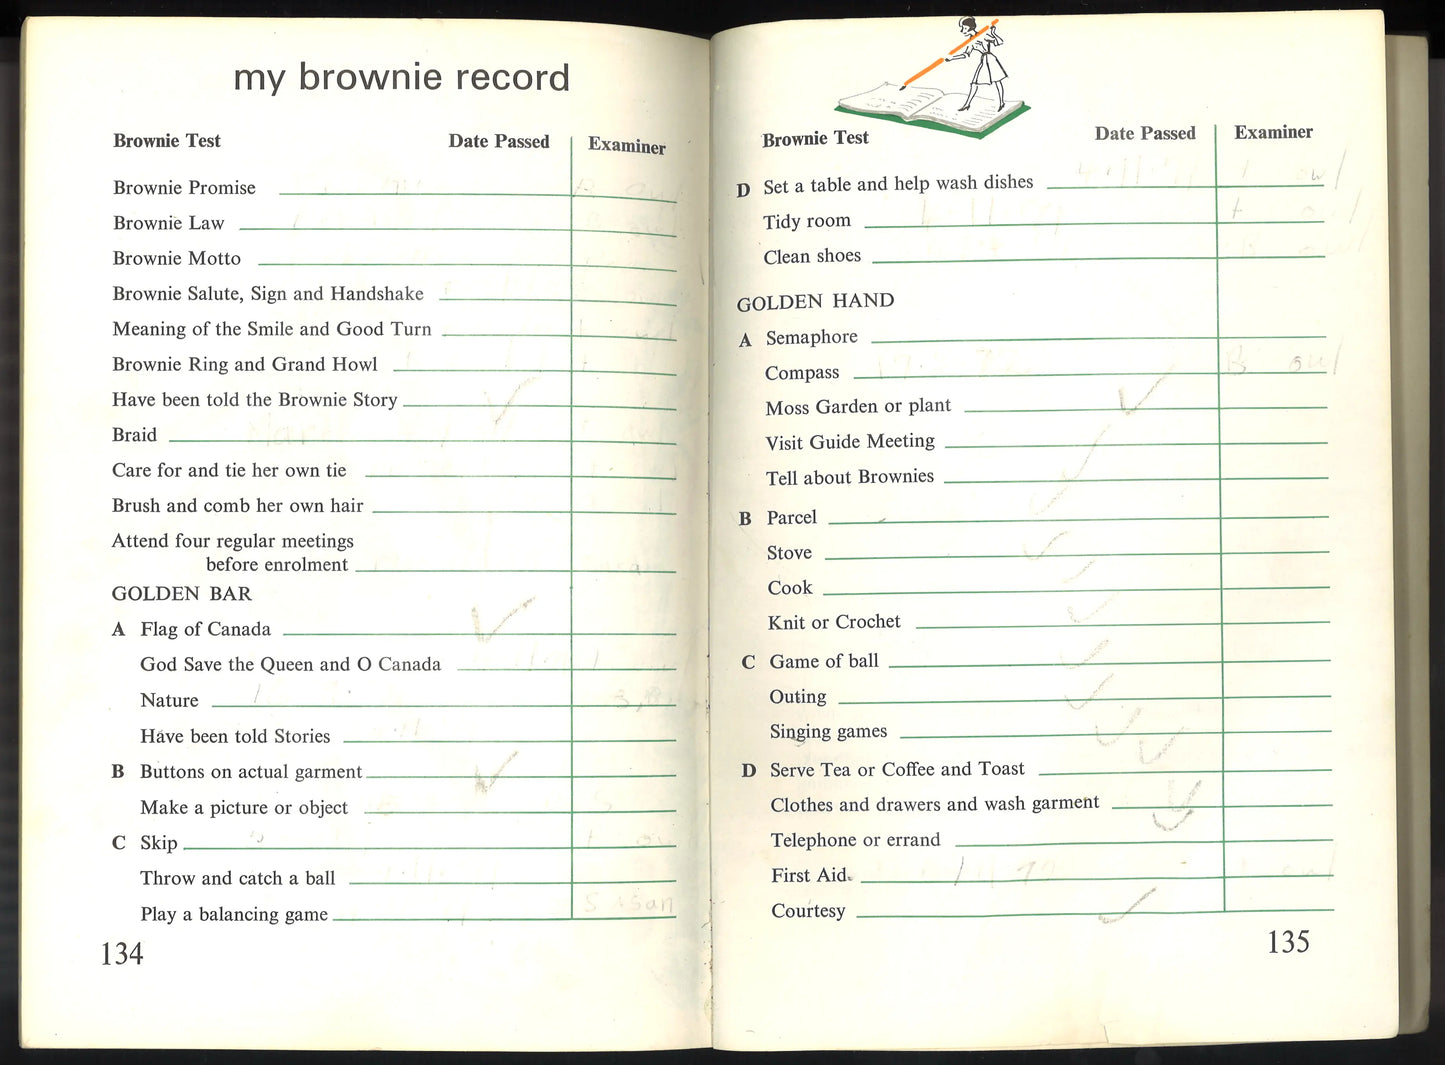 my brownie record
Brownie Test Date Passed Examiner
Brownie Promise
Brownie Law
Brownie Motto
Brownie Salute, Sign and Handshake
Meaning of the Smile and Good Turn
Brownie Ring and Grand Howl
Have been told the Brownie Story
Braid
Care for and tie her own tie
Brush and comb her own hair
Attend four regular meetings
before enrolment
GOLDEN BAR
A Flag of Canada
God Save the Queen and O Canada
Nature
Have been told Stories
B Buttons on actual garment
Make a picture or object
C Skip
Throw and catch a ball
Play a balancing game
134
Brownie Test Date Passed Examiner
D Set a table and help wash dishes owl
Tidy room
Clean shoes B owl
GOLDEN HAND
A Semaphore
Compass B owl
Moss Garden or plant
Visit Guide Meeting
Tell about Brownies
B Parcel
Stove
Cook
Knit or Crochet
C Game of ball
Outing
Singing games
D Serve Tea or Coffee and Toast
Clothes and drawers and wash garment
Telephone or errand
First Aid owl
Courtesy
135